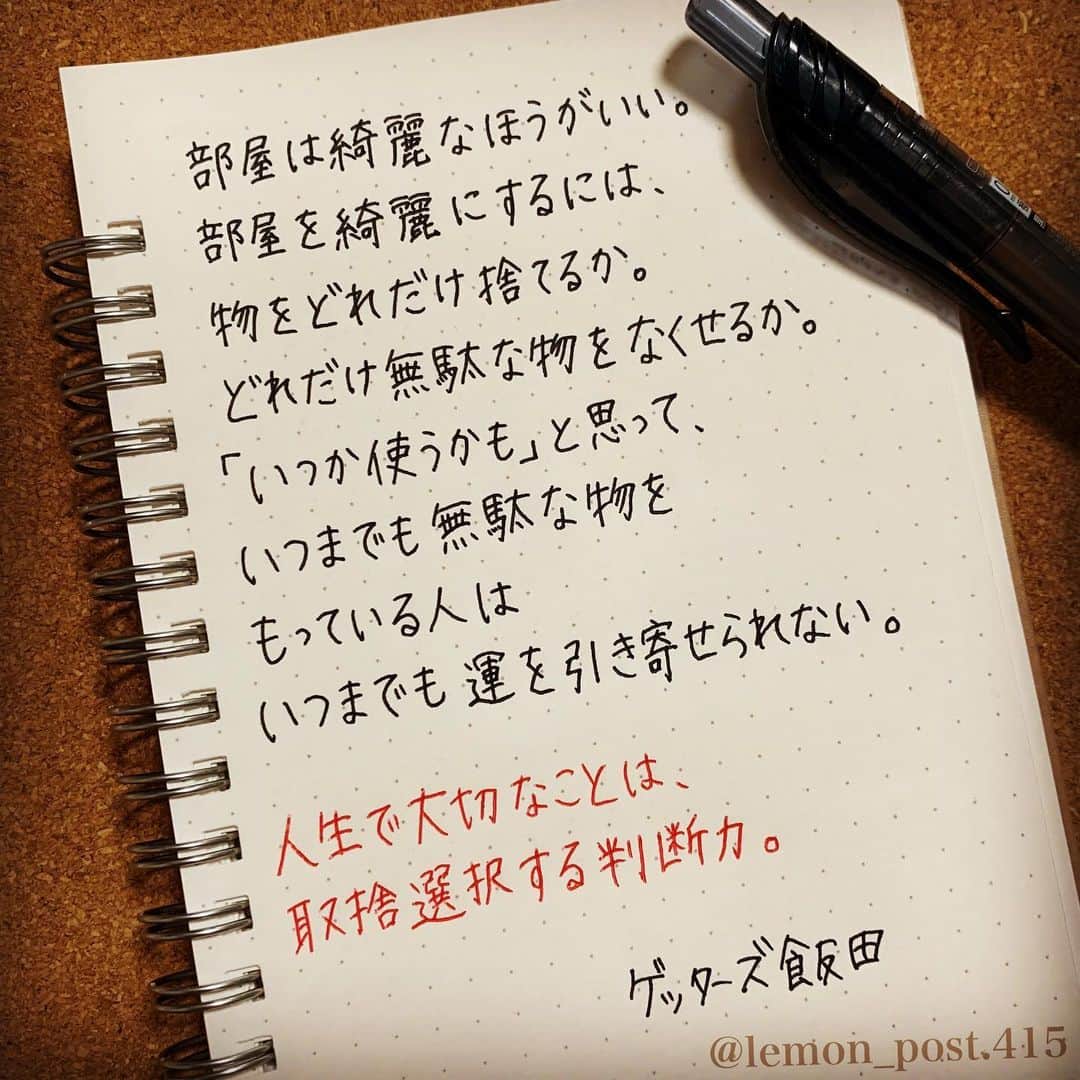 部屋は綺麗なほうがいい。
部屋を綺麗にするには、
物をどれだけ捨てるか。
どれだけ無駄な物をなくせるか。
「いつか使うかも」と思って、
いつまでも無駄な物を
もっている人は
いつまでも運を引き寄せられない。
人生で大切なことは、
取捨選択する判断力。
ゲッターズ飯田
@lemon_post.415